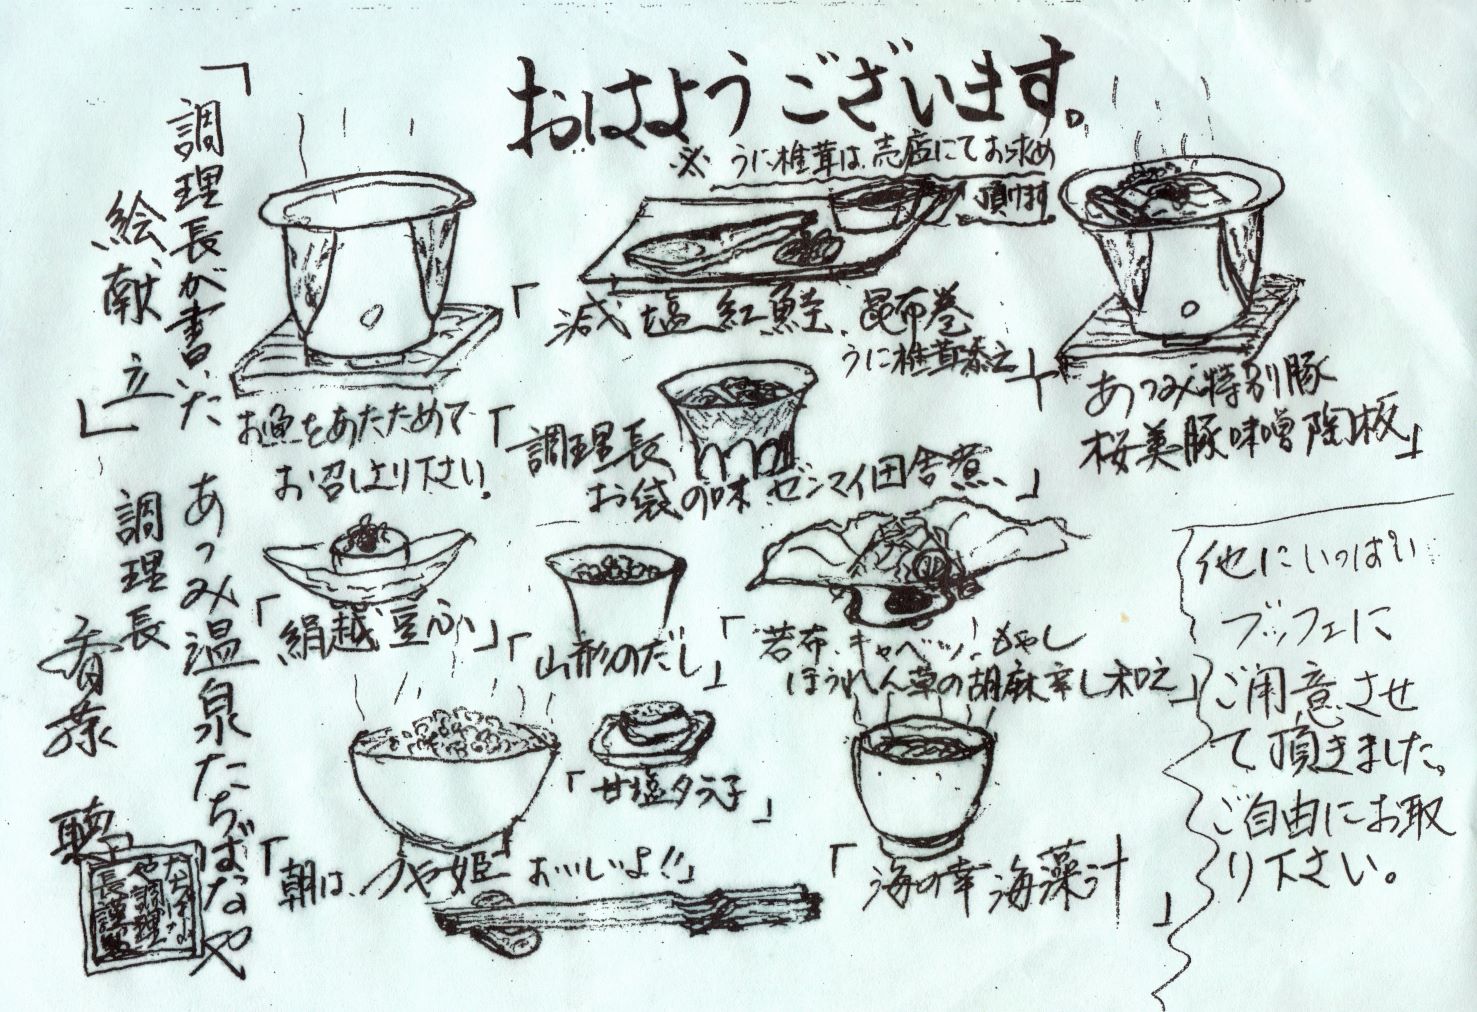 おはようございます。
※うに椎茸は、売店にてお求め
頂けます。
「調理長が書いた
絵献立」
お魚をあたためて
お召し上り下さい。
「減塩紅鮭、昆布巻
うに椎茸添え」
あつみ特別豚
桜美豚味噌陶板」
「調理長
お袋の味 ゼンマイ田舎煮」
「絹越豆ふ」
「山形のだし」
「若布、キャベツ、もやし
ほうれん草の胡麻寄し和え」
「朝は、つや姫 おいしいよ!!」
「甘塩タラ子」
「海の幸 海藻汁」
他にいっぱい
ブッフェに
ご用意させ
て頂きました。
ご自由にお取
り下さい。
あつみ温泉たちばなや
調理長